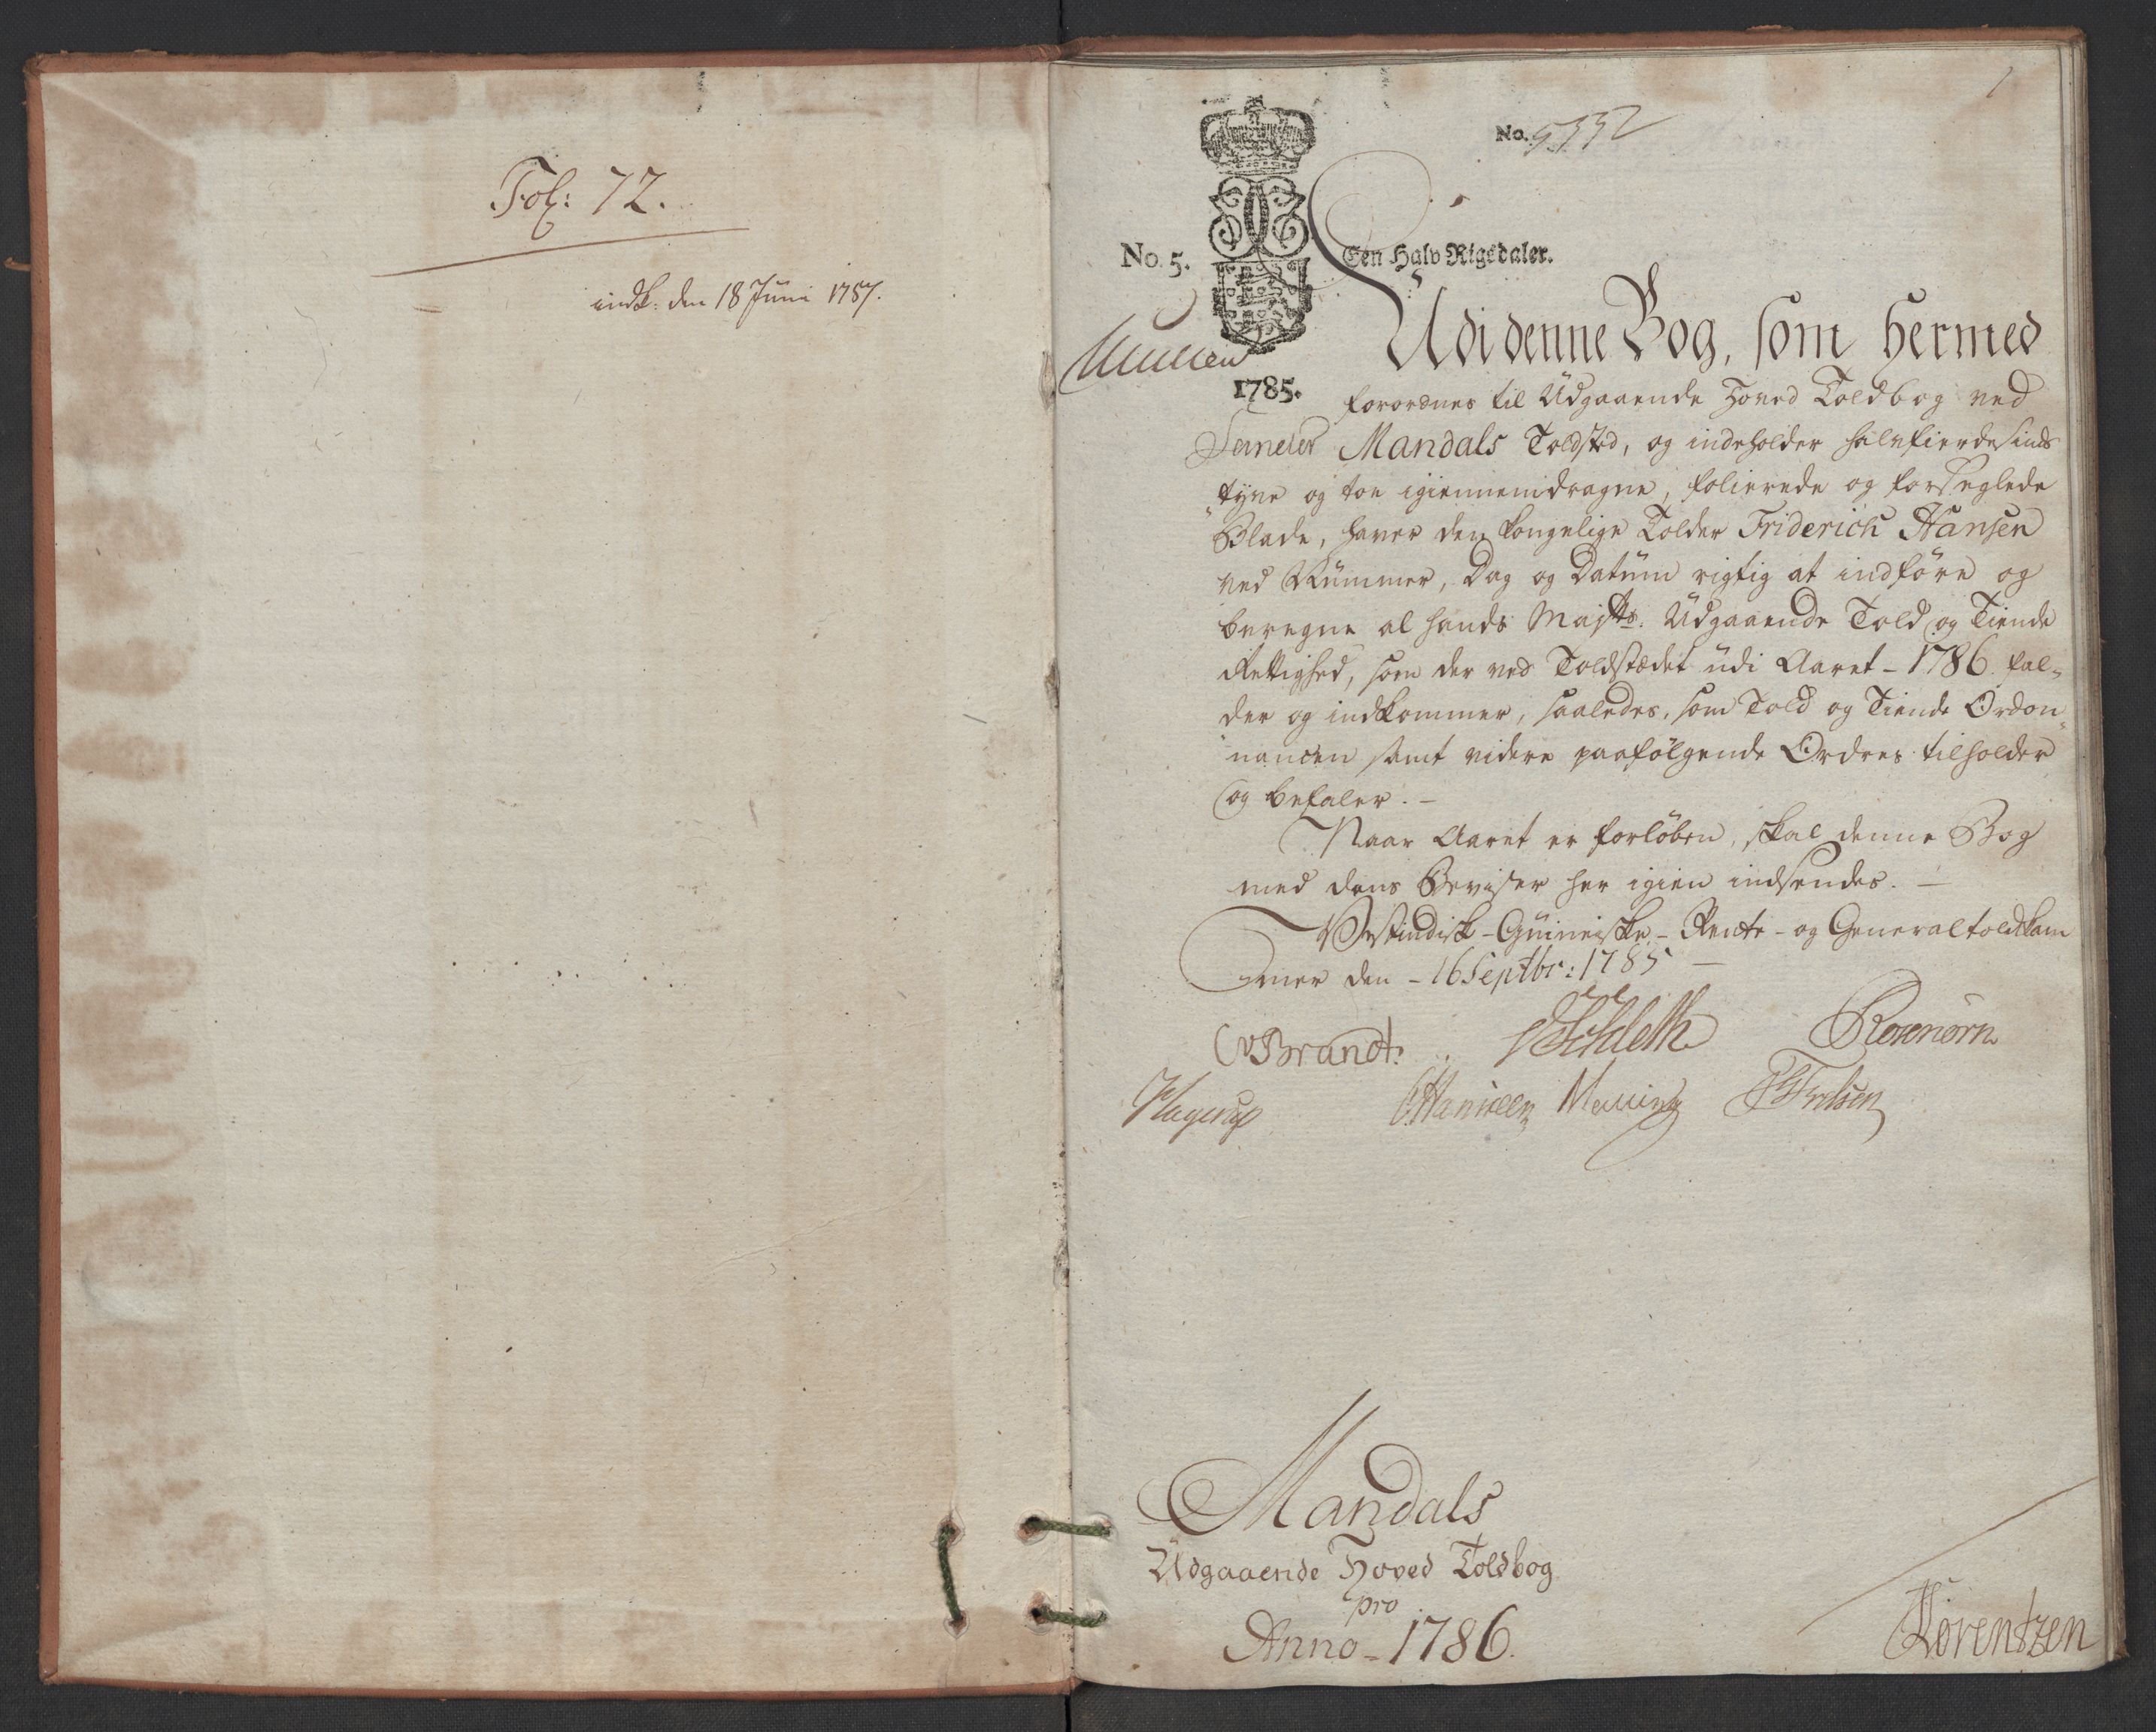 Fol: 72.
indk: den 18 Juni 1787.
1
No. 5352
No. 5.
Een Halv Rigsdaler.
1785.
Udi denne Bog, som hermed
forordnes til Udgaaende Hoved Toldbog ved
Mandals Toldsted, og indeholder halvfierdesinds
tyve og toe igiennemdragne, folierede og forseglede
Blade, haver den kongelige Tolder Friderich Hansen
ved Nummer, Dag og Datum rigtig at indføre og
beregne al hands Majsts. Udgaaende Told og Tiende
Rettighed, som der ved Toldstædet udi Aaret - 1786 fal-
der og indkommer, saaledes, som Told og Tiende Ordon-
nancen samt videre paafølgende Ordres tilholder
og befaler. -
Naar Aaret er forløben, skal denne Bog
med dens Beviser her igien indsendes. -
Vestindisk-Guineiske- Rente- og Generaltoldkam
mer den - 16 Septbr: 1785 -
CvBrandt. Schleth Rosenørn
Hagerup Manicen Malling
Mandals
Udgaaende Hoved Toldbog
pro
Anno - 1786.
Lorentzen